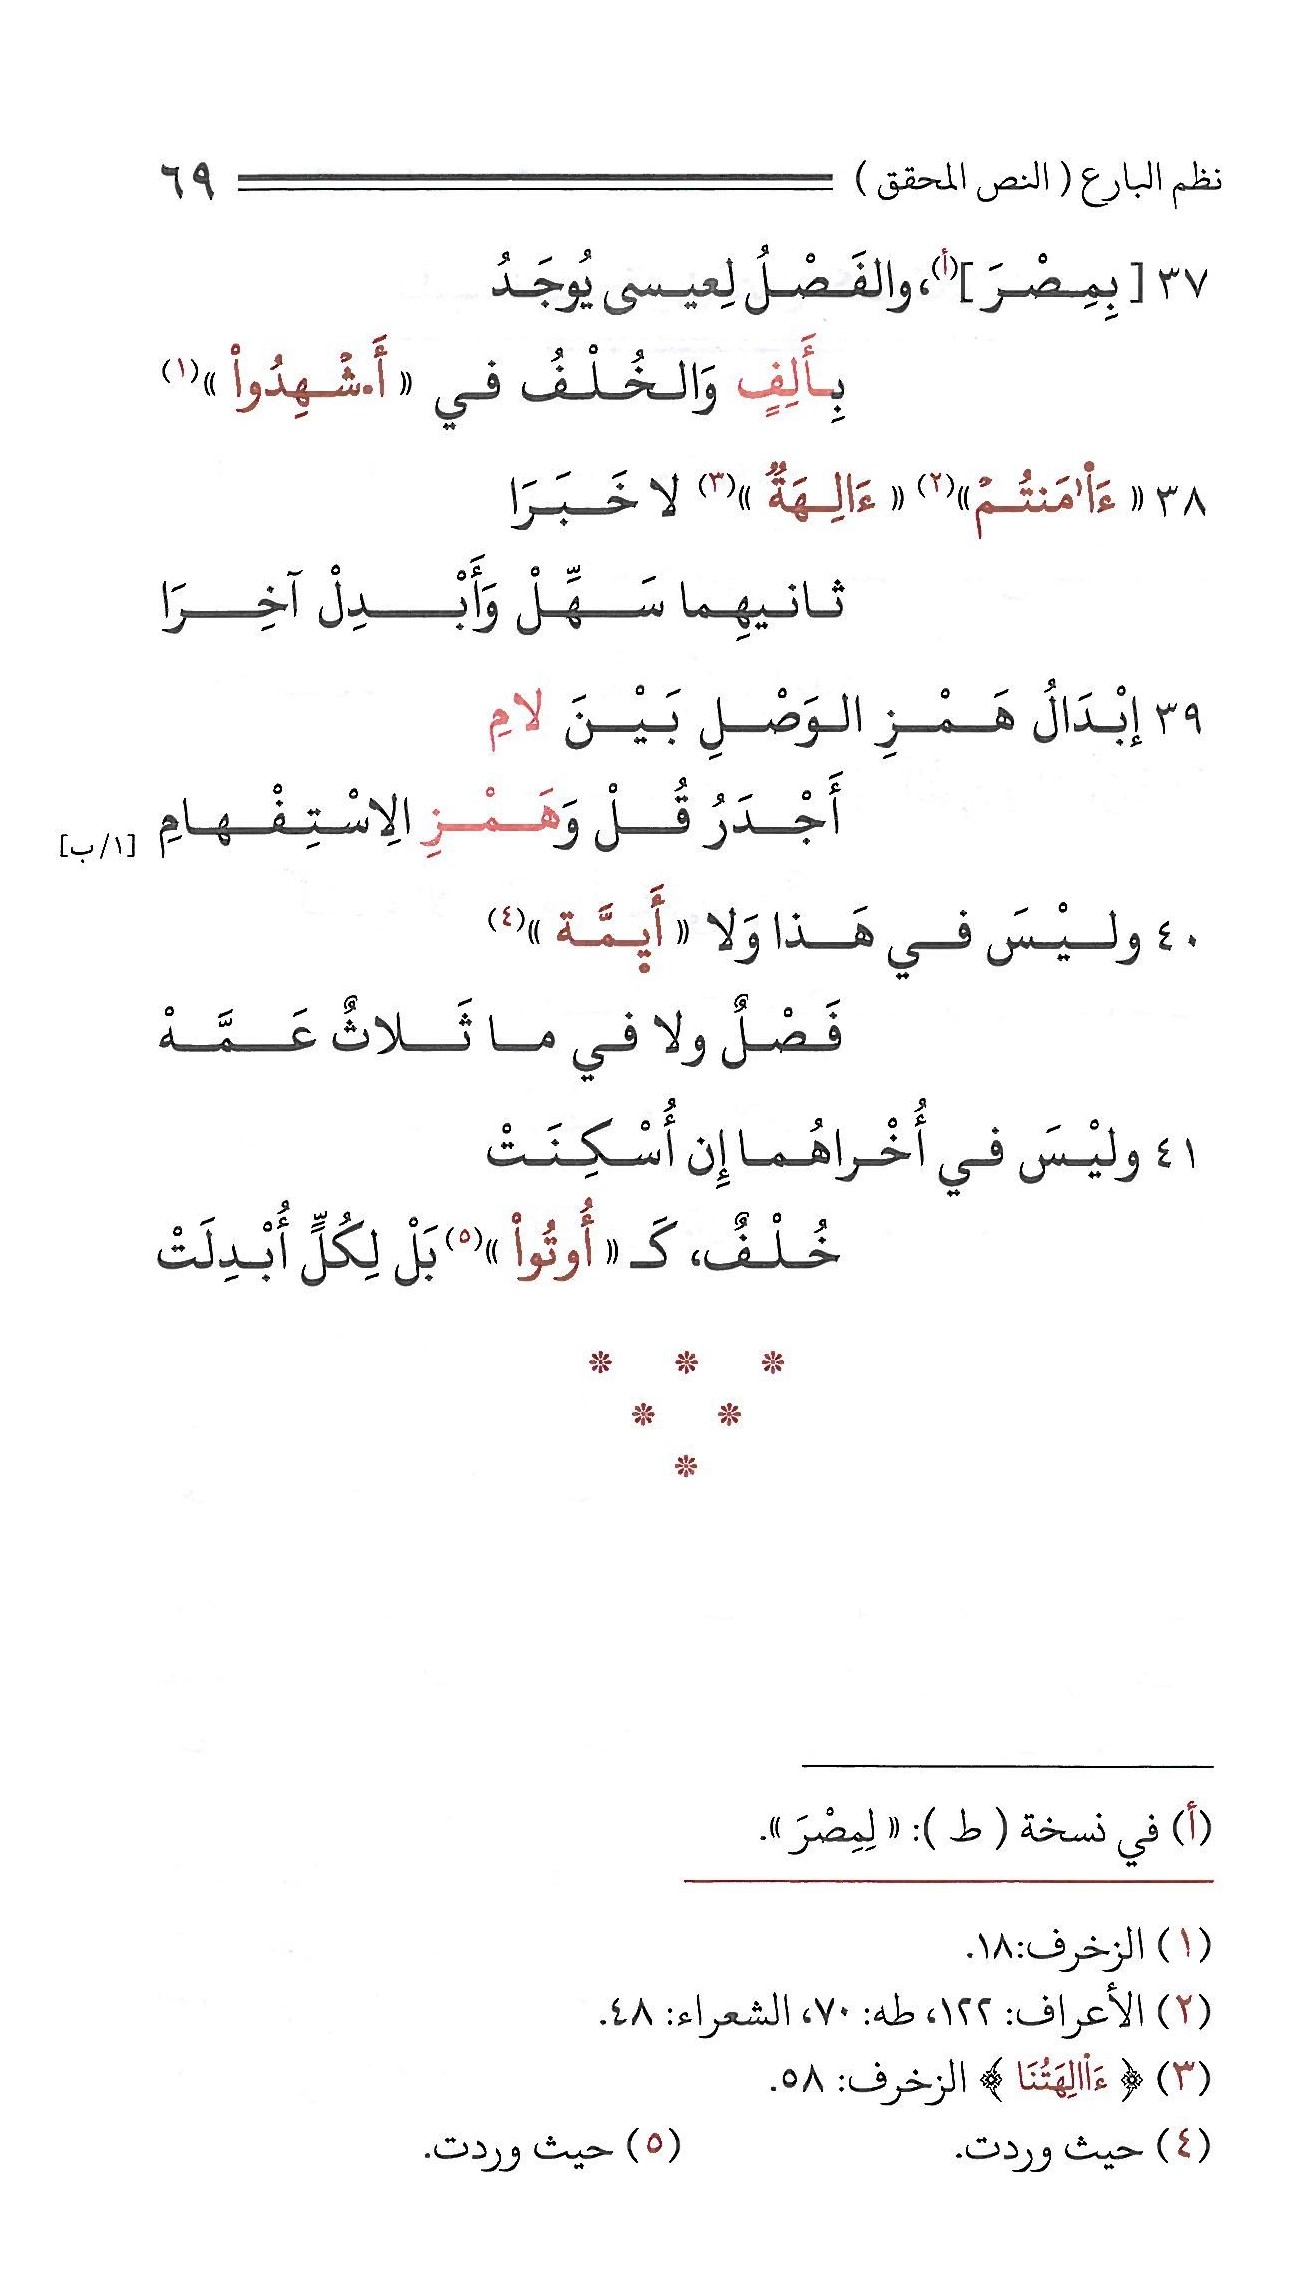 نظم البارع ( النص المحقق ) ٦٩
٣٧ [ بِمِصْرَ ]⁽أ⁾، والفَصْلُ لِعيسى يُوجَدُ
بِأَلِفٍ وَالخُلْفُ في « أَ•شْهِدُواْ »(١)
٣٨ « ءَاْ•مَنتُمْ»(٢) « ءَالِهَةٌ »(٣) لا خَبَرَا
ثانيهِما سَهِّلْ وَأَبْدِلْ آخِرَا
٣٩ إبْدَالُ هَمْزِ الوَصْلِ بَيْنَ لامِ
أَجْدَرُ قُلْ وَهَمْزِ الِاسْتِفْهامِ [١/ب]
٤٠ وليْسَ في هَذا وَلا « أَيِمَّة »(٤)
فَصْلٌ ولا في ما ثَلاثٌ عَمَّهْ
٤١ وليْسَ في أُخْراهُما إِن أُسْكِنَتْ
خُلْفٌ، كَـ « أُوتُواْ »(٥) بَلْ لِكُلٍّ أُبْدِلَتْ
(أ) في نسخة ( ط ): « لِمِصْرَ ».
(١) الزخرف:١٨.
(٢) الأعراف: ١٢٢، طه: ٧٠، الشعراء: ٤٨.
(٣) ﴿ ءَاْالِهَتُنَا ﴾ الزخرف: ٥٨.
(٤) حيث وردت. (٥) حيث وردت.